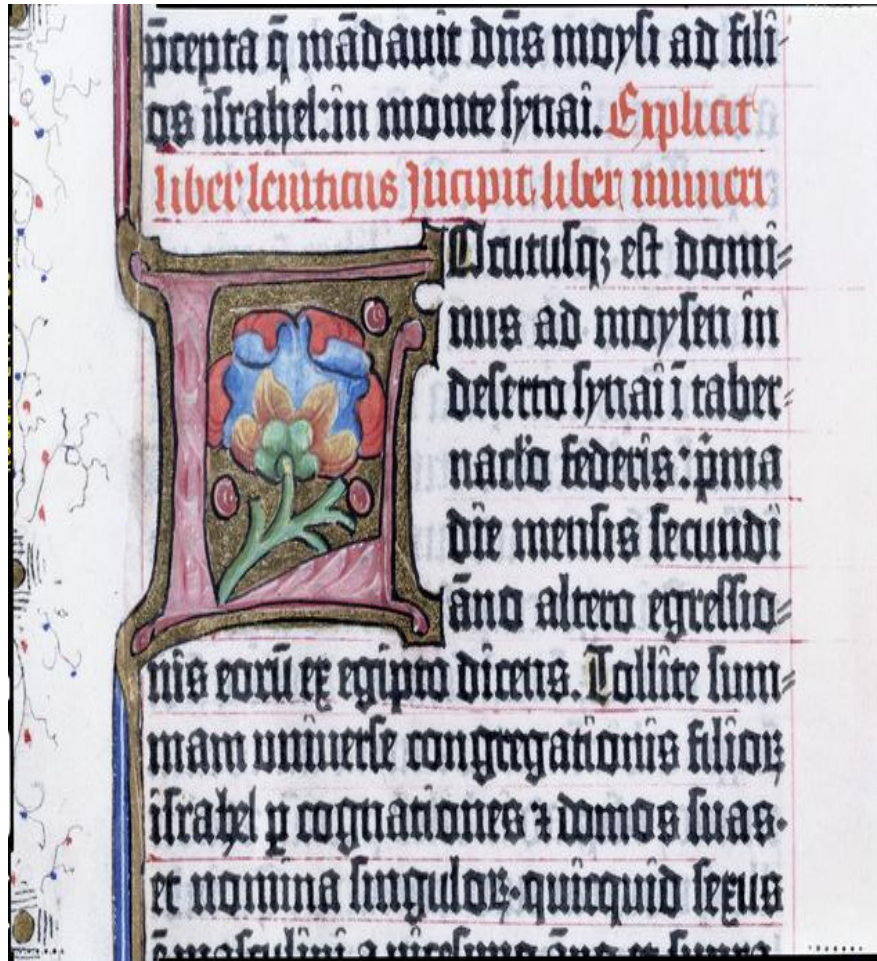 p̄cepta q̄ mādauit dn̄s moysi ad fili⸗
os israhel: in monte synai. Explicit
liber leuiticus Incipit liber numeri
LOcutusqꝫ est domi⸗
nus ad moysen in
deserto synai ī taber⸗
nac̄lo federis: p̄ma
die mensis secundi
āno altero egressio⸗
nis eorū ex egipto dicens. Tollite sum⸗
mam uniuerse congregationis filioꝝ
israhel ꝑ cognationes ⁊ domos suas·
et nomina singuloꝝ· quicquid sexus
ē masculini a vicesimo āno et supra